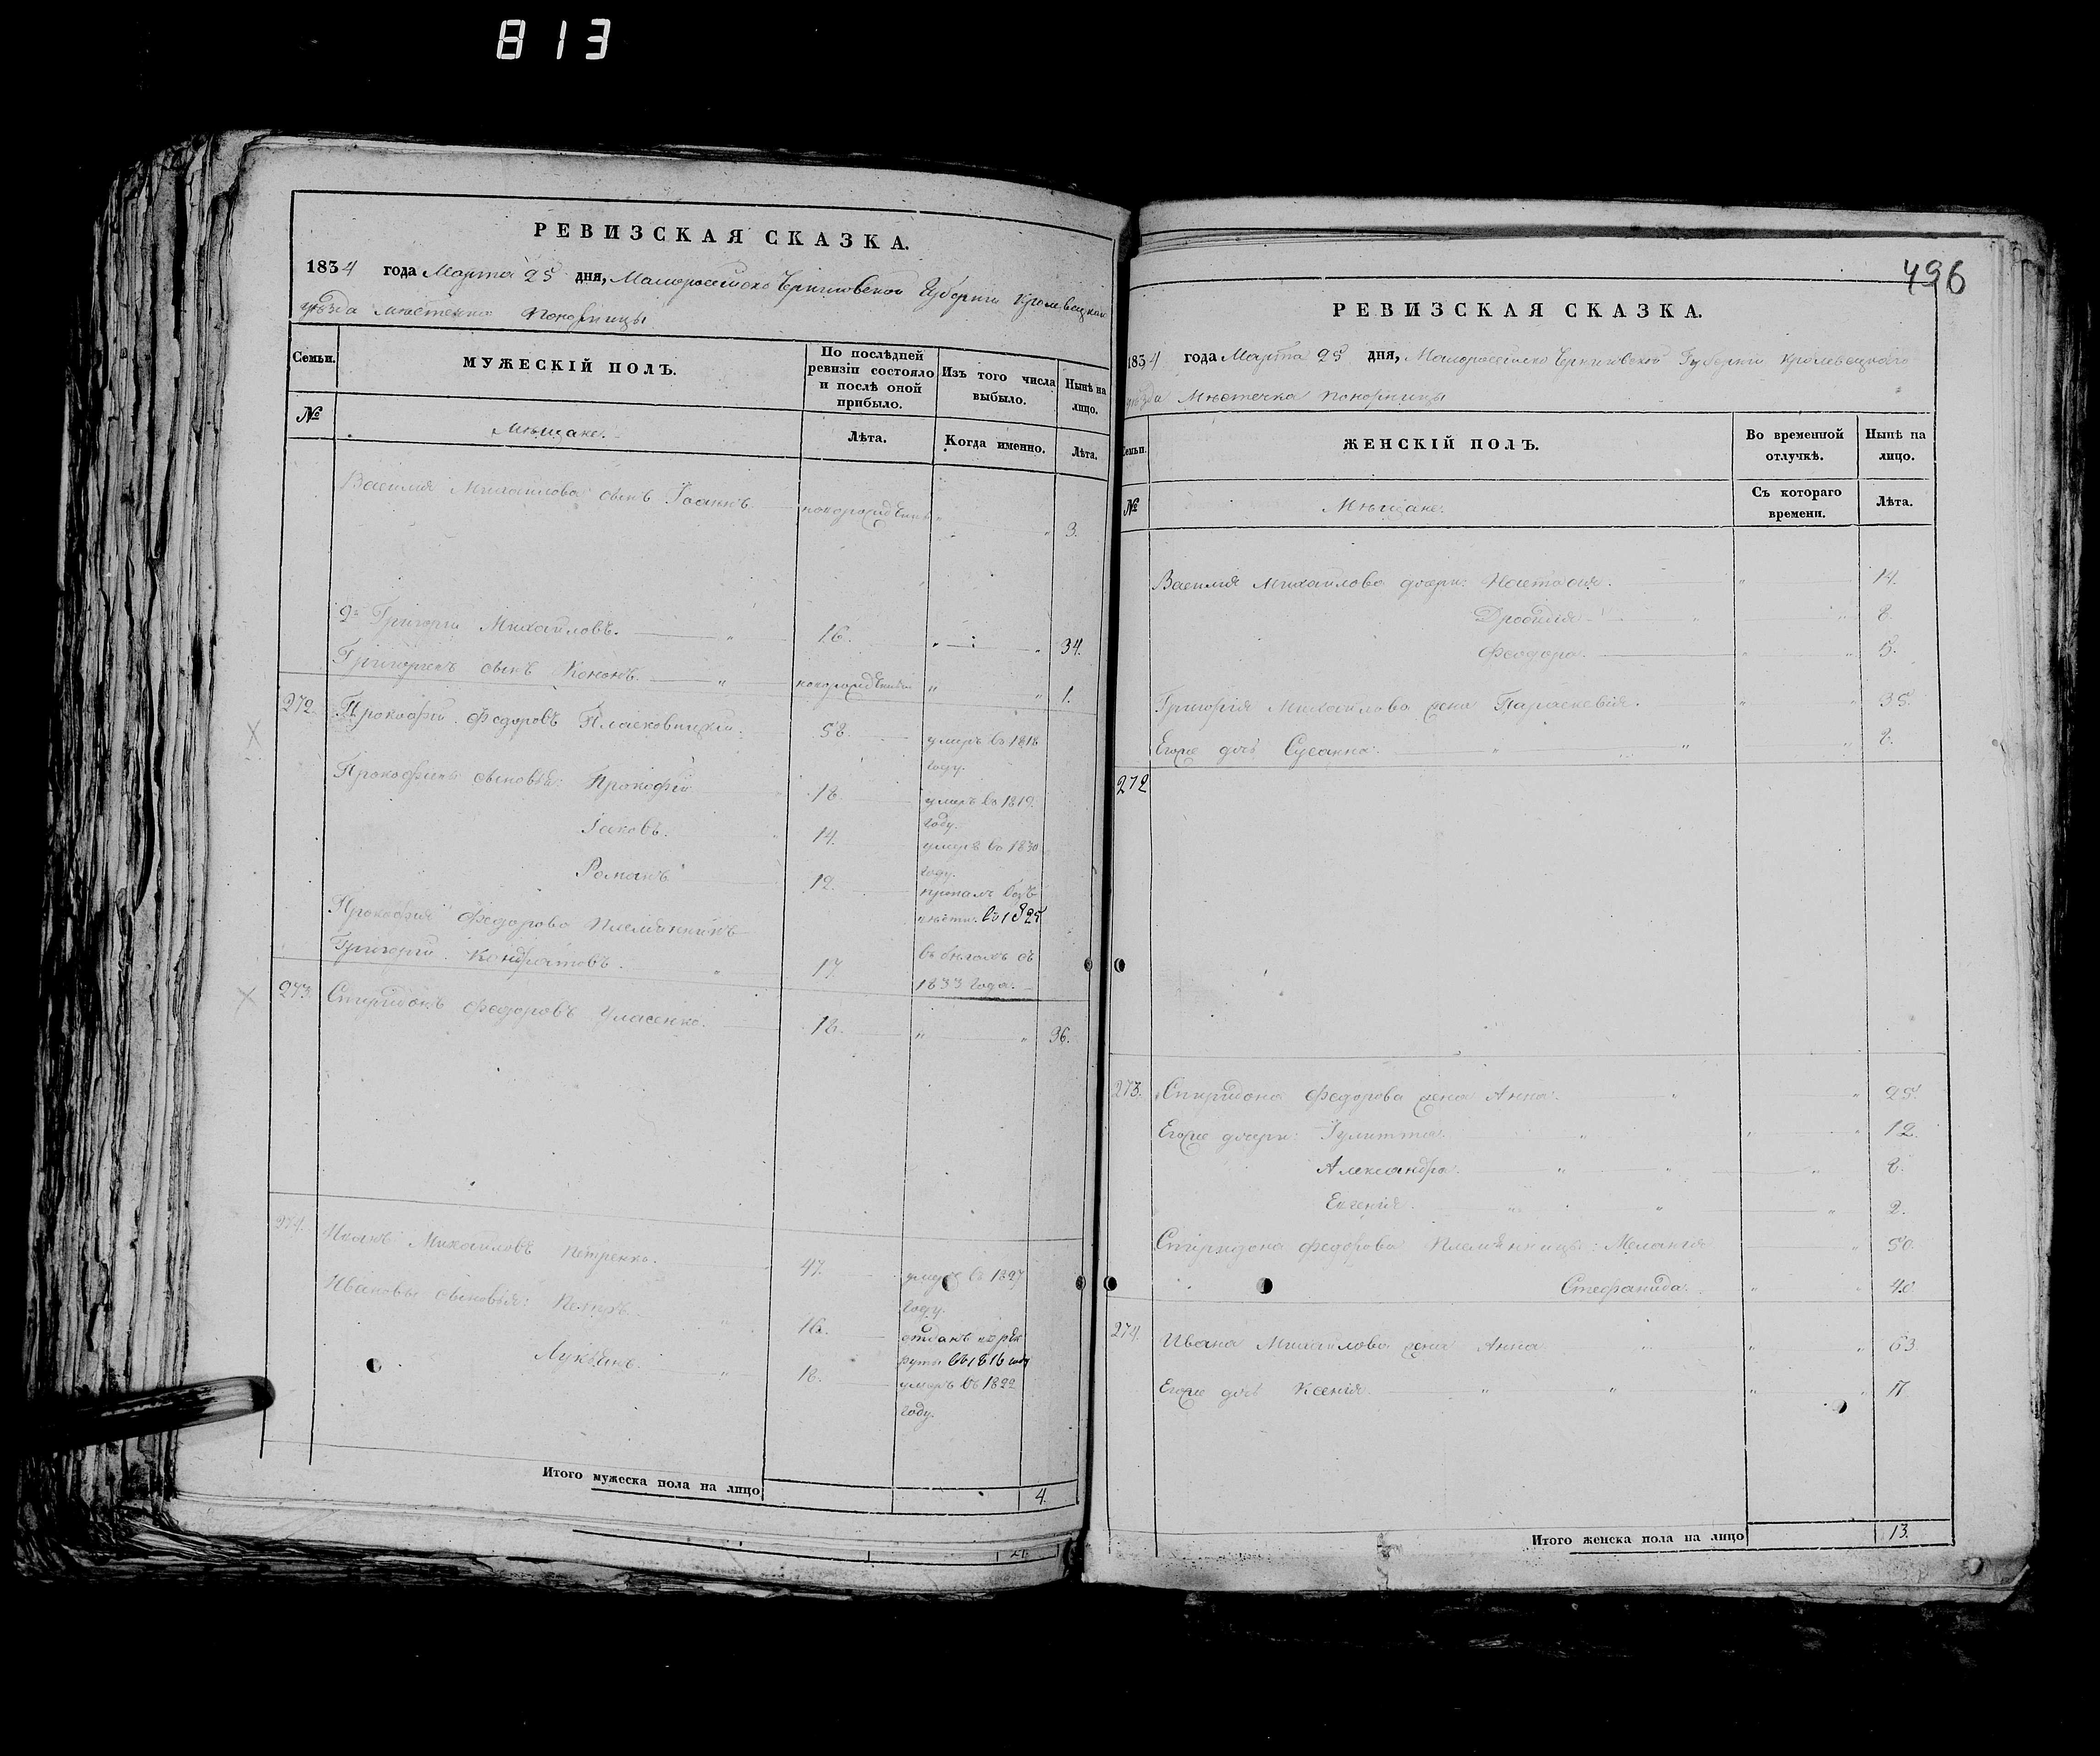 813
РЕВИЗСКАЯ СКАЗКА.
1834 года Марта 25 дня, Малороссійско Черниговской Губерніи Кролевецкаго
уѣзда мѣстечка Понорницы
Семьи.
МУЖЕСКІЙ ПОЛЪ.
По послѣдней ревизіи состояло и послѣ оной прибыло.
Изъ того числа выбыло.
Нынѣ на лицо.
№
Мѣщане.
Лѣта.
Когда именно.
Лѣта.
Василія Михайлова сынъ Іоаннъ новорожденъ " " 3.
2й Григорій Михайловъ. " 16. " " 34.
Григоріевъ сынъ Кононъ. " новорожденъ " " 1.
272. Прокофій Федоровъ 58. умеръ въ 1818
году.
Прокофіевы сыновья: Прокофій 18. умеръ въ 1819
году.
Іаковъ. 14. умеръ въ 1830
году.
Романъ 12. пропалъ безъ
вѣсти въ 1825
Прокофія Федорова племянникъ
Григорій Кондратовъ. " 17. въ бѣгахъ съ
1833 года.
273. Спиридонъ Федоровъ Уласенко. 18. " " 36.
274. Иванъ Михайловъ Петренко. 47. умеръ въ 1827
году.
Ивановы сыновья: Петръ. " 16. отданъ въ рек
руты въ 1816 году
Лукьянъ. " 18. умеръ въ 1822
году.
Итого мужеска пола на лицо 4.
496
РЕВИЗСКАЯ СКАЗКА.
1834 года Марта 25 дня, Малороссійско Черниговской Губерніи Кролевецкаго
уѣзда Мѣстечка Понорницы
Семьи.
ЖЕНСКІЙ ПОЛЪ.
Во временной отлучкѣ.
Нынѣ на лицо.
№
Мѣщане.
Съ котораго времени.
Лѣта.
Василія Михайлова дочери: Настасія. " 14.
" " 8.
Феодора. " " 5.
Григорія Михайлова жена Параскевія. " " 35.
Егоже дочь Сусанна. " " " 8.
272
273. Спиридона Федорова жена Анна. " " 25.
Егоже дочери: Іулитта. " " " 12.
Александра. " " " 8.
Евгенія. " " " 2.
Спиридона Федорова племянницы: Меланія " 50.
" Стефанида. " " 40.
274. Ивана Михайлова жена Анна " " " 63.
Егоже дочь Ксенія " " " " 17.
Итого женска пола на лицо 13.